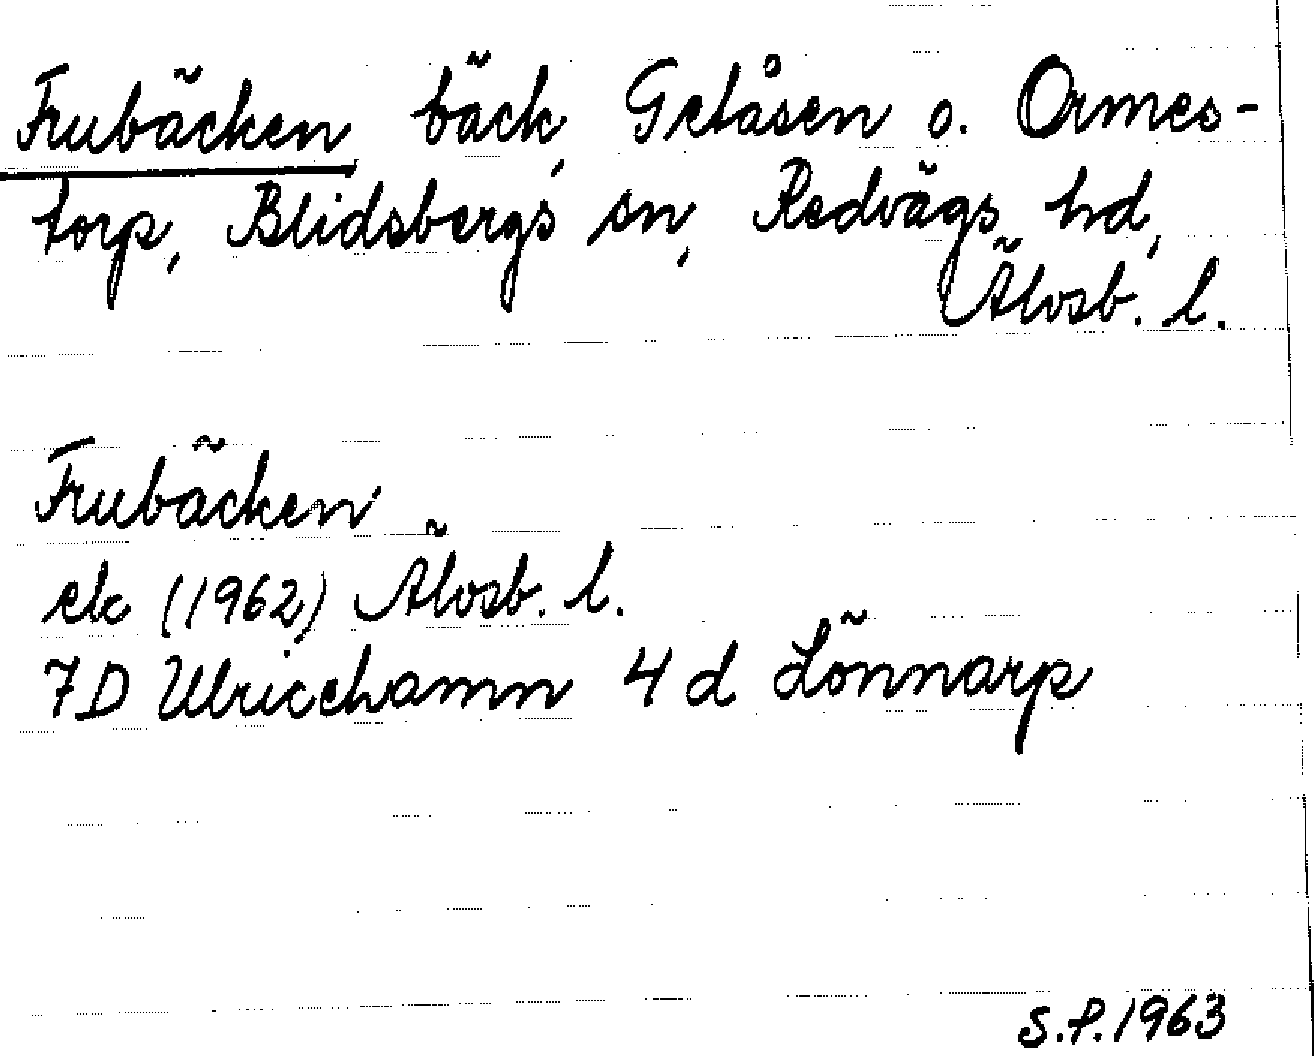 Frubäcken, bäck, Getåsen o. Ormes-
torp, Blidsbergs sn, Redvägs hd,
Älvsb. l.
Frubäcken
ek (1962) Älvsb. l.
7D Ulricehamn 4 d Lönnarp
S.P. 1963